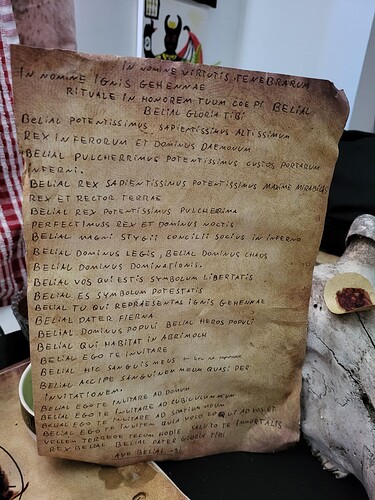 IN NOMINE VIRTUTIS TENEBRARUM
IN NOMINE IGNIS GEHENNAE
RITUALE IN HONOREM TUUM COEPI BELIAL
BELIAL GLORIA TIBI
BELIAL POTENTISSIMUS, SAPIENTISSIMUS ALTISSIMUM
REX INFERORUM ET DOMINUS DAEMONUM
BELIAL PULCHERRIMUS POTENTISSIMUS CUSTOS PORTARUM
INFERNI.
BELIAL REX SAPIENTISSIMUS POTENTISSIMUS MAXIME MIRABILIS
REX ET RECTOR TERRAE
BELIAL REX POTENTISSIMUS PULCHERIMA
PERFECTIMUSS REX ET DOMINUS NOCTIS
BELIAL MAGNI STYGII CONCILII SOCIUS IN INFERNO
BELIAL DOMINUS LEGIS, BELIAL DOMINUS CHAOS
BELIAL DOMINUS DOMINATIONIS.
BELIAL VOS QUI ESTIS SYMBOLUM LIBERTATIS
BELIAL ES SYMBOLUM POTESTATIS
BELIAL TU QUI REPRAESENTAS IGNIS GEHENNAE
BELIAL PATER FIERNA
BELIAL DOMINUS POPULI BELIAL HEROS POPULI
BELIAL QUI HABITAT IN ABRIMOCH
BELIAL EGO TE INVITARE
BELIAL HIC SANGUIS MEUS
BELIAL ACCIPE SANGUINEM MEUM QUASI PER
INVITATIONEM.
BELIAL EGO TE INVITARE AD DOMUM
BELIAL EGO TE INVITARE AD CUBICULUM MEUM
BELIAL EGO TE INVITARE AD SPATIUM MEUM
BELIAL EGO TE INVITEM QUIA VOLO
VELLEM TECUM HODIE SALUTO TE IMMORTALIS
REX BELIAL BELIAL PATER GLORIA TIBI
AVE BELIAL